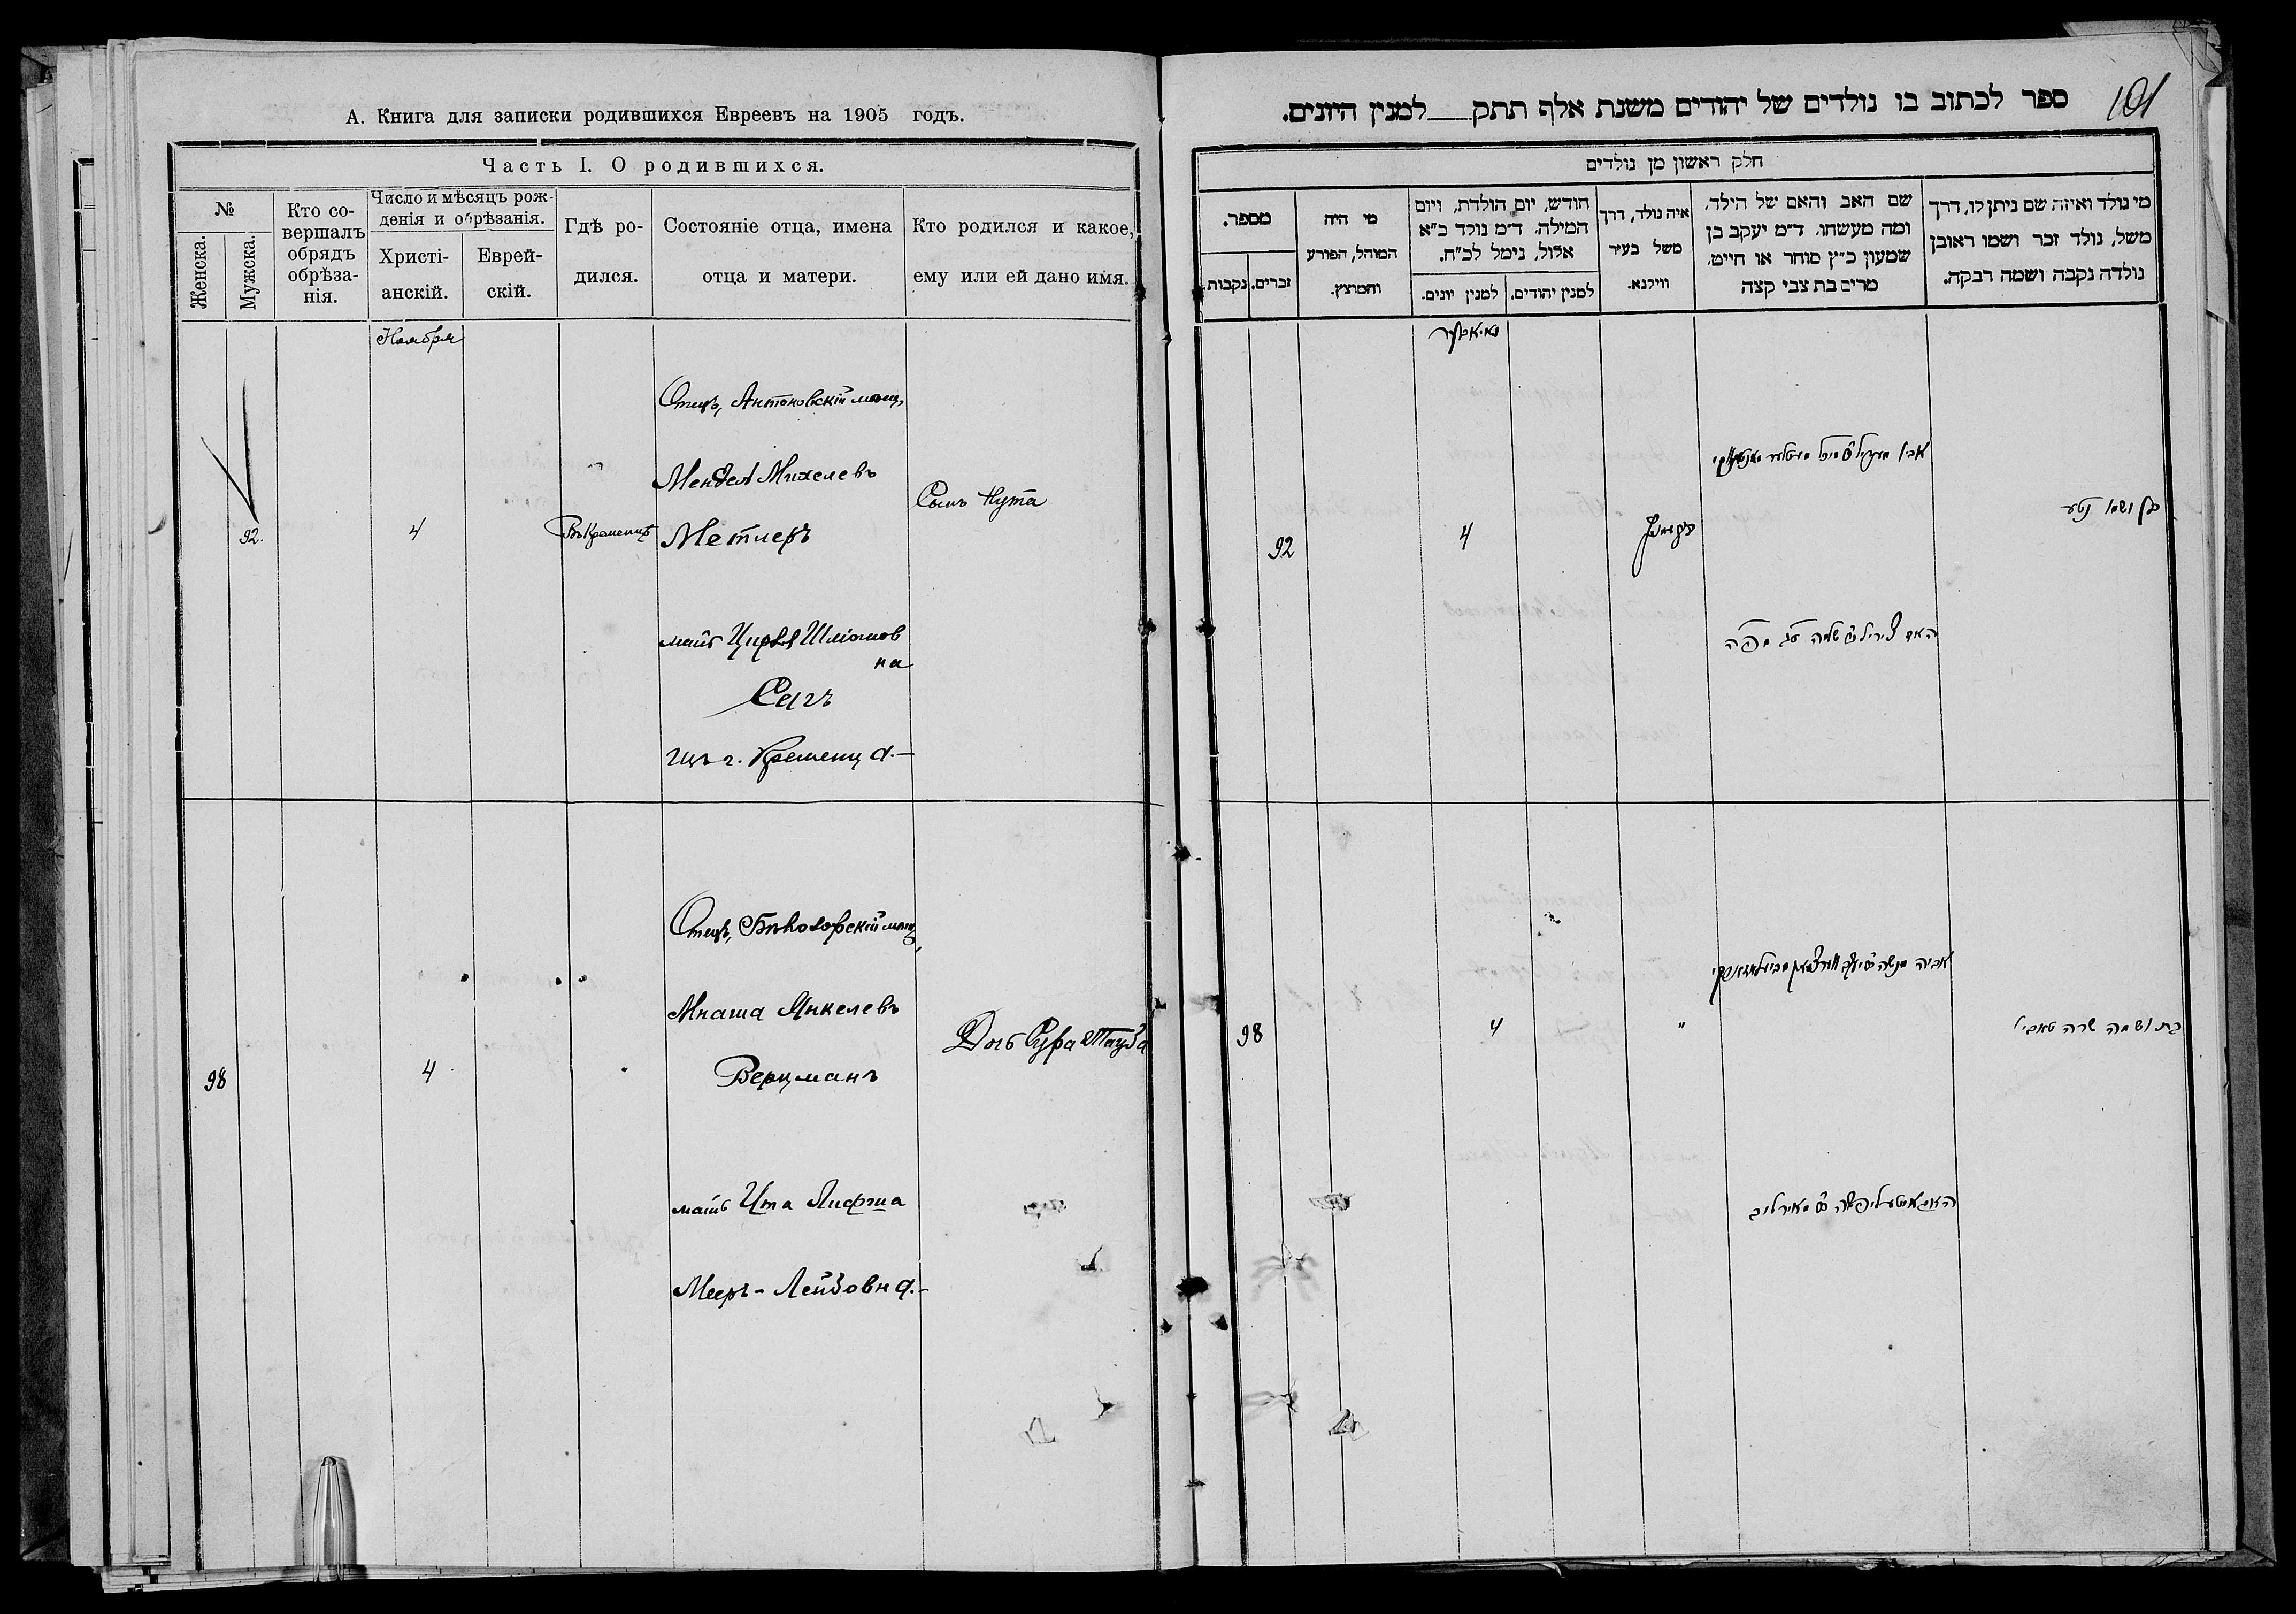 А. Книга для записки родившихся Евреевъ на 1905 годъ.
Часть I. О родившихся.
№
Женска.
Мужска.
Кто со-
вершалъ
обрядъ
обрѣза-
нія.
Число и мѣсяцъ рож-
денія и обрѣзанія.
Христі-
анскій.
Еврей-
скій.
Гдѣ ро-
дился.
Состояніе отца, имена
отца и матери.
Кто родился и какое,
ему или ей дано имя.
Ноября
92.
4
Въ Кременцѣ
Отецъ, Антоновскій мѣщ.
Мендель Михелевъ
Метлеръ
мать Цирля Шліомов
на
Сагъ
изъ г. Кременца.—
Сынъ Нута
98
4
"
Отецъ, Бѣлозорскій мѣщ,
Мнаша Янкелевъ
Верцманъ
мать Ита Лифша
Мееръ-Лейбовна.-
Дочь Сура Тауба
101
ספר לכתוב בו נולדים של יהודים משנת אלף תתק למנין היונים.
חלק ראשון מן נולדים
מי נולד ואיזה שם ניתן לו, דרך
משל, נולד זכר ושמו ראובן
נולדה נקבה ושמה רבקה.
שם האב והאם של הילד,
ומה מעשהו. ד"מ יעקב בן
שמעון כ"ץ סוחר או חייט,
מרים בת צבי קצה
איה נולד, דרך
משל בעיר
ווילנא.
חודש, יום הולדת, ויום
המילה. ד"מ נולד כ"א
אלול, נימל לכ"ח.
למנין יהודים.
למנין יונים.
מי היה
המוהל, הפורע
והמוצץ.
מספר.
זכרים.
נקבות.
92
4
בן ושמו נטע
98
4
"
בת ושמה שרה טאבי